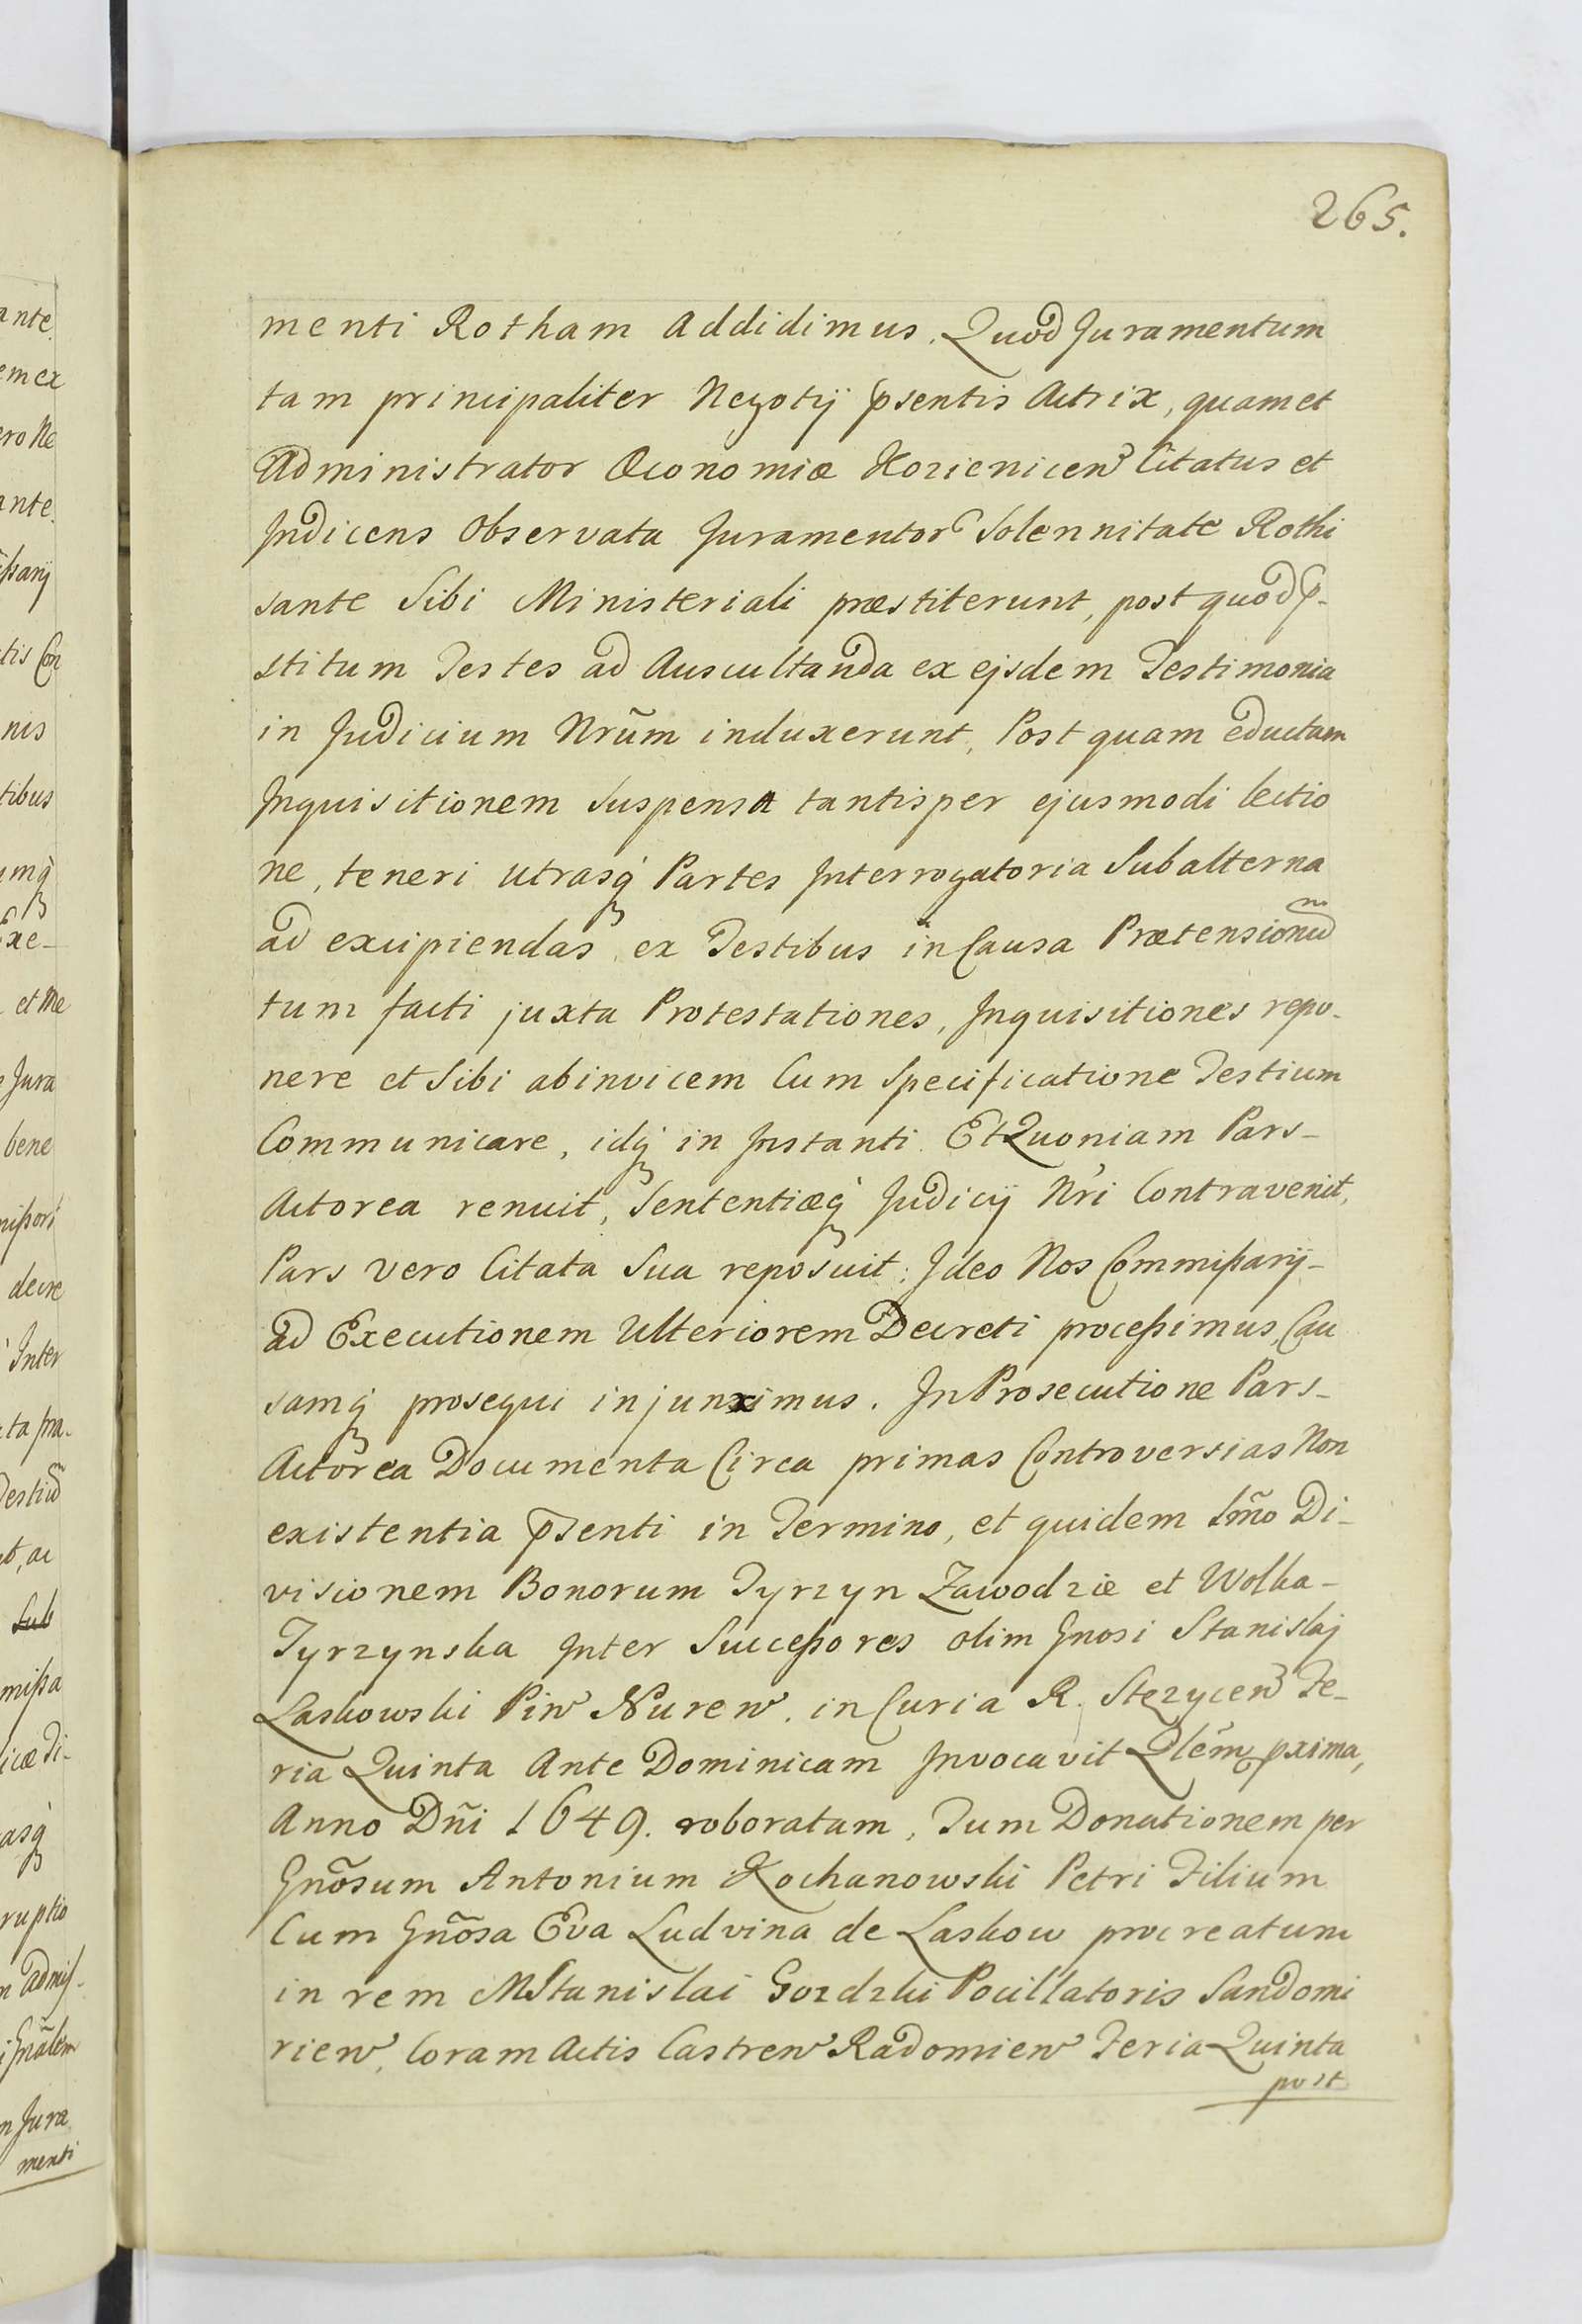 265.
menti Rotham addidimus. Quod Juramentum
tam principaliter Negotij p̃sentis Actrix, quam et
Administrator Œconomiæ Kozienicen̄ Citatus et
Indicens observata Juramentor̃ Solennitate Rothi
sante Sibi Ministeriali præstiterunt, post quod p̃-
stitum Testes ad Auscultanda ex ejsdem Testimonia
in Judicium Nrũm induxerunt, Post quam eductam
Inquisitionem suspensa tantisper ejusmodi lectio
ne, teneri utrasq́ Partes Interrogatoria Subalterna
ad excipiendas ex Testibus in Causa Prætensionũ
tum facti juxta Protestationes, Inquisitiones repo-
nere et Sibi abinvicem Cum Specificatione Testium
Communicare, idq́ in Instanti. Et Quoniam Pars-
Actorea renuit, Sententiæq́ Judicij Nr̃i Contravenit,
Pars vero Citata Sua reposuit: Ideo Nos Commißarij-
ad Executionem Ulteriorem Decreti proceßimus, Cau
samq́ prosequi injunximus. In Prosecutione Pars-
Actorea Documenta Circa primas Controversias Non
existentia p̃senti in Termino, et quidem Imõ Di-
visionem Bonorum Tyrzyn Zawodzie et Wolka-
Tyrzynska Inter Succeßores olim Gnosi Stanislaj
Laskowski Pin̄ Nuren̄. in Curia R. Stęzycen̄ Fe-
ria Quinta Ante Dominicam Invocavit Qlẽm pxima,
Anno Dñi 1649. roboratam, Tum Donationem per
Gnõsum Antonium Kochanowski Petri Filium
Cum Gnõsa Eva Ludvina de Laskow procreatum
in rem M Stanislai Gozdzki Pocillatoris Sandomi
rien̄, Coram Actis Castren̄ Radomien̄ Feria Quinta
post